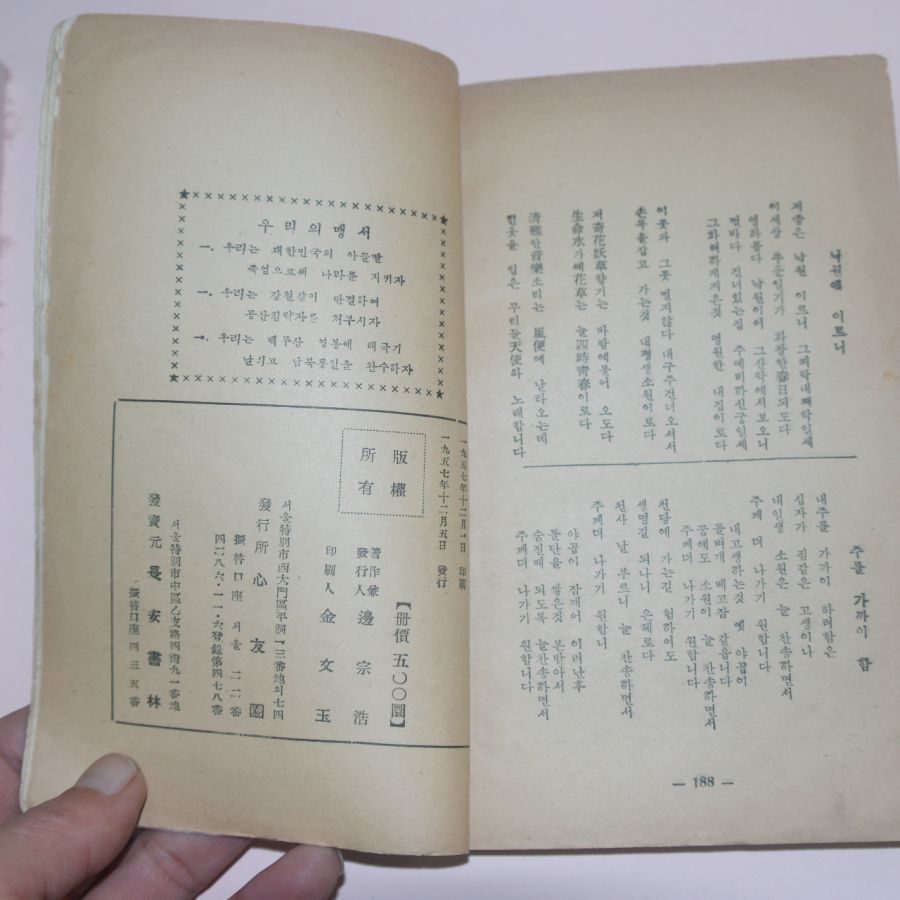 우리의맹서
一. 우리는 대한민국의 아들딸
죽엄으로써 나라를 지키자
一. 우리는 강철같이 단결하여
공산침략자를 처부시자
一. 우리는 백두산 영봉에 태극기
날리고 남북통일을 완수하자
版權
所有
一九五七年十二月 印刷
一九五七年十二月五日 發行
【册價 五〇〇圜】
著作兼
發行人 邊宗浩
印刷人 金文玉
서울特別市西大門區平洞一三番地의七四
發行所 心友園
振替口座 서울 二二番
四二八六・一一・六登錄第四七八番
서울特別市中區乙支路四街九一番地
發賣元 長安書林
振替口座四三五番
낙원에 이르니
저좋은 낙원 이르니 그쾌락내쾌락일세
이세상 추운일기가 화창한春日되도다
영화롭다 낙원이어 그산악에서보오니
먼바다 건너있는집 주예비하신궁일세
그화려하게지은것 영원한 내집이로다
이곳과 그곳 멀지않다 내구주건너오셔서
손목을잡고 가는것 내평생소원이로다
저奇花妖草향기는 바람에불어 오도다
生命水가에花草는 늘四時靑春이로다
淸雅한音樂소리는 風便에 날라오는데
흰옷을 입은 무리들天使와 노래합니다
주를 가까이 함
내주를 가까이 하려함은
십자가 짐같은 고생이나
내일생 소원은 늘 찬송하면서
주께 더 나가기 원합니다
내고생하는것 옛 야곱이
돌벼개 베고잠 같읍니다
꿈에도 소원이 늘 찬송하면서
주께더 나가기 원합니다
천당에 가는길 험하여도
생명길 되나니 은혜로다
천사 날 부르니 늘 찬송하면서
주께더 나가기 원합니
야곱이 잠깨어 이러난후
돌단을 쌓은것 본받아서
숨질때 되도록 늘찬송하면서
주께더 나가기 원합니다
— 188 —